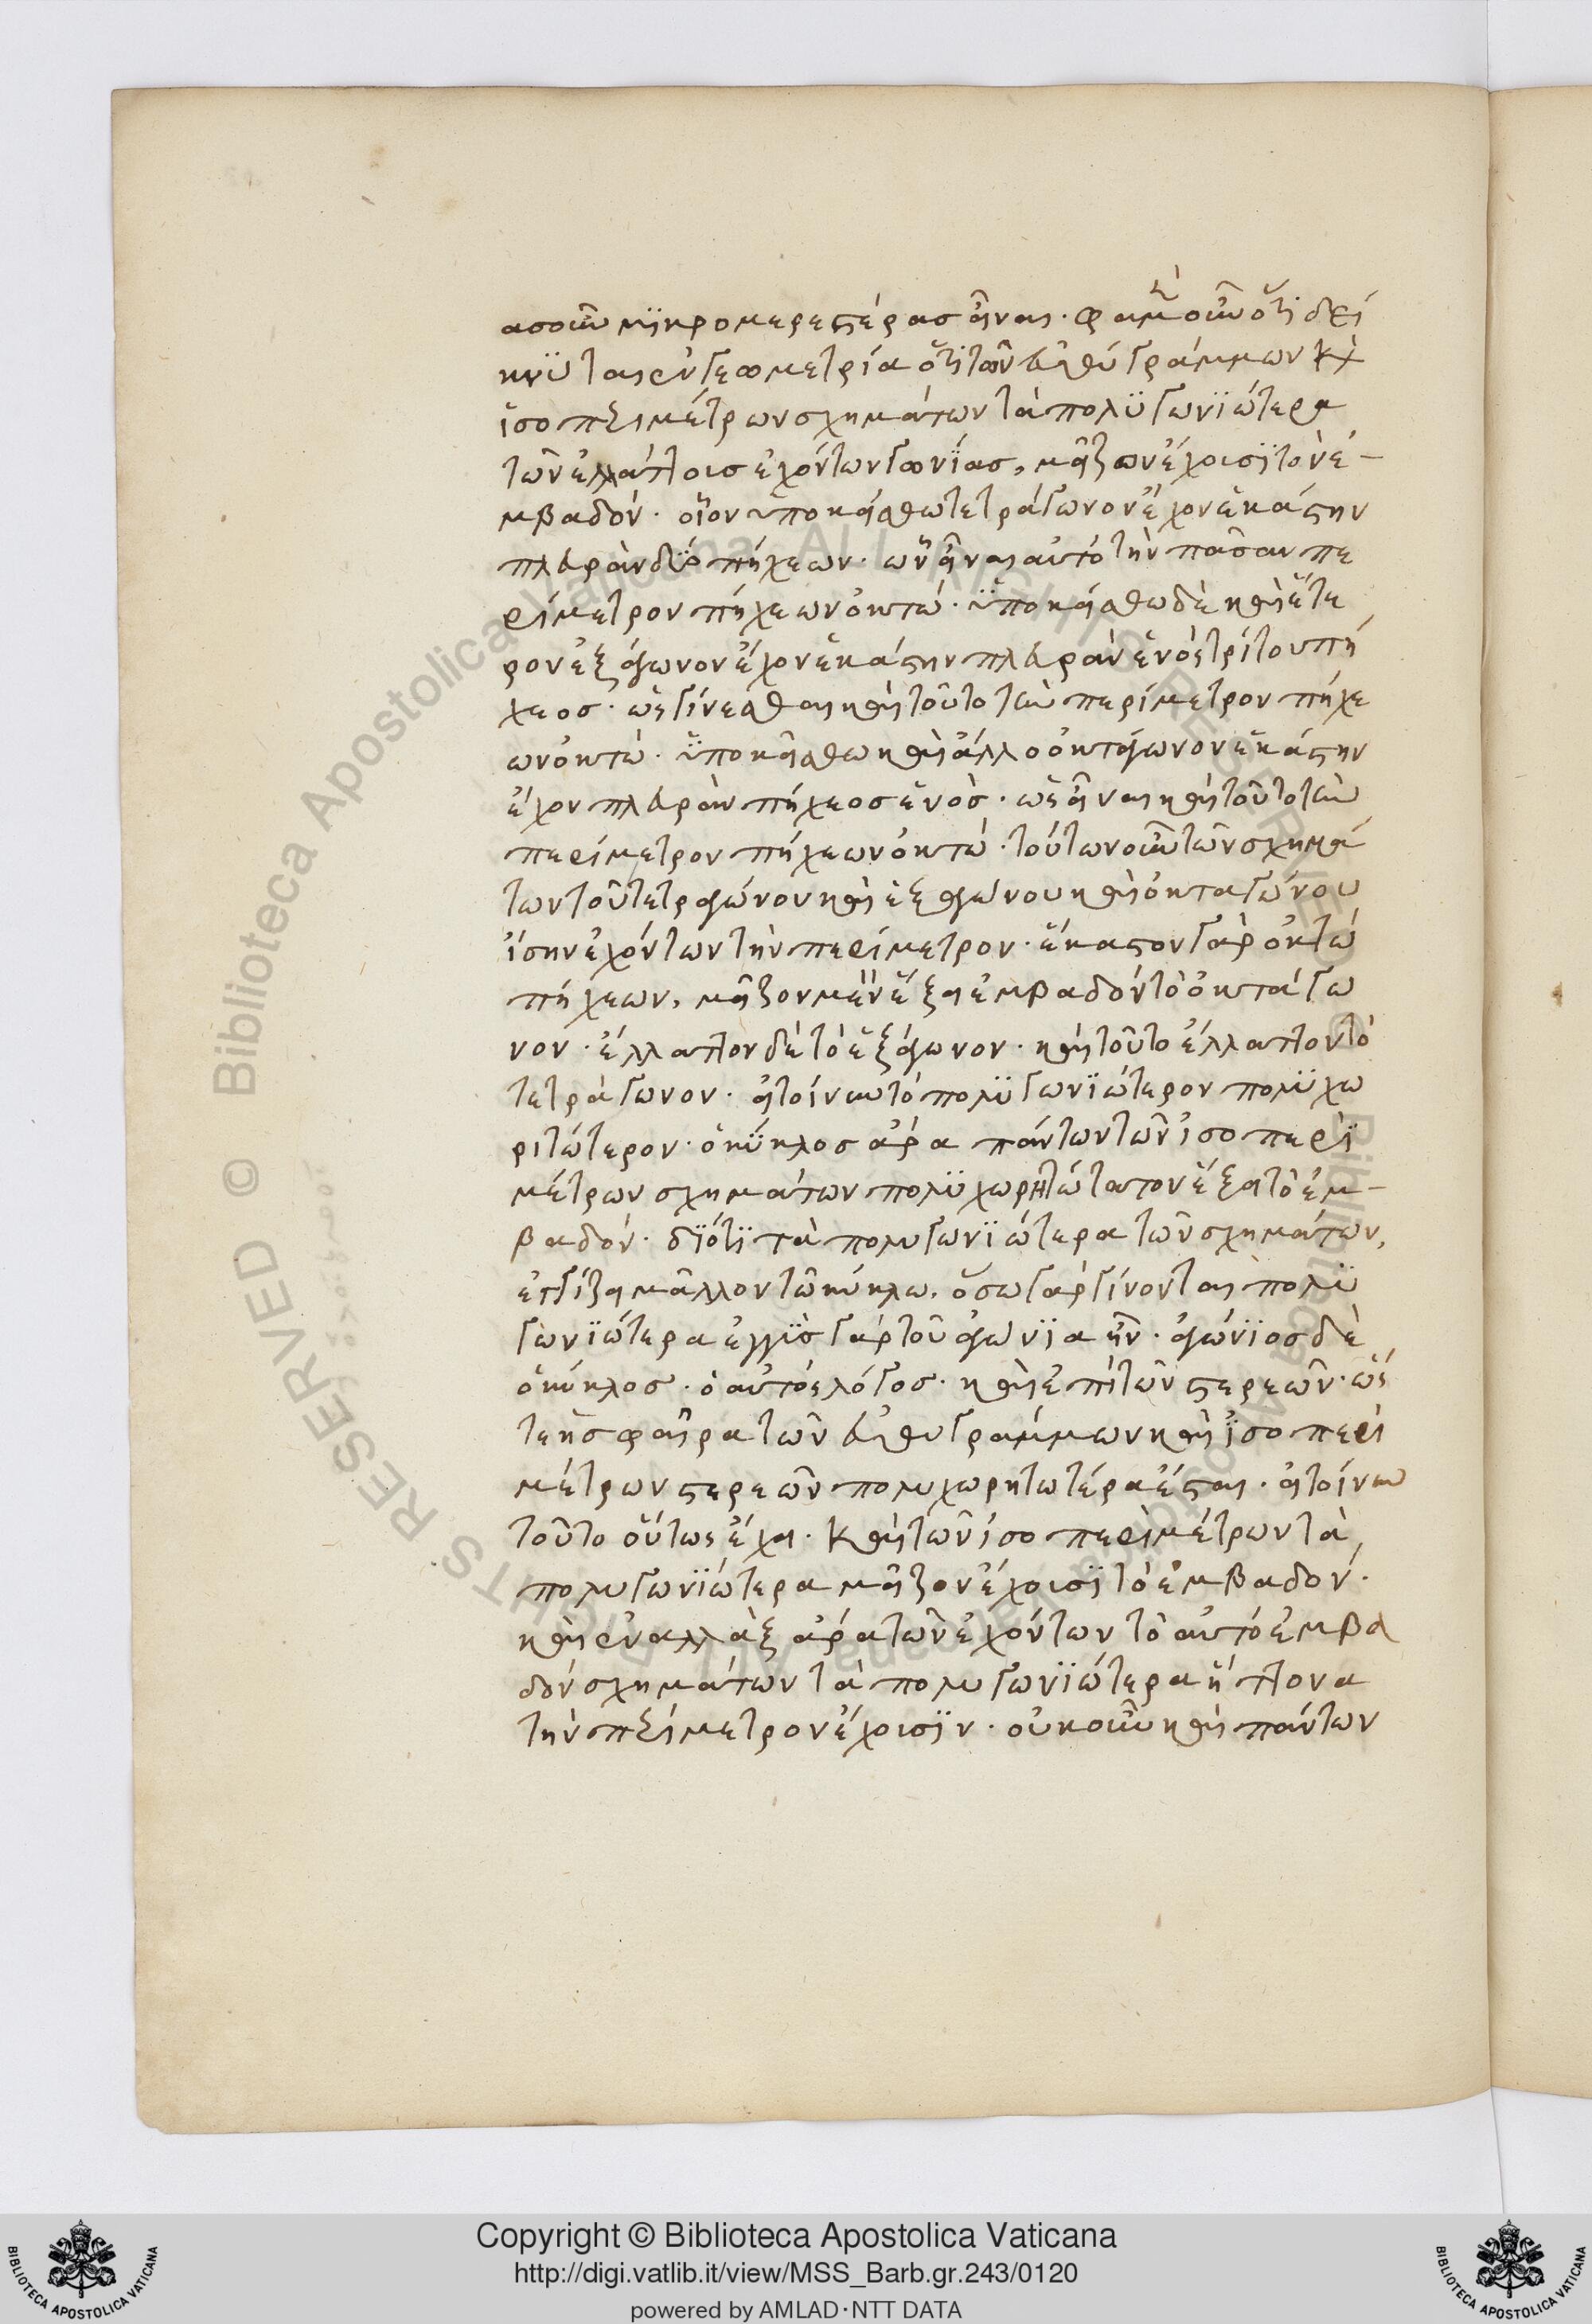 ασ οὖν μϊκρομερεστέρασ εἶναι· φαμὲν οὖν ὅτι δεί
κνϋται ἐν γεωμετρία ὅτϊ τῶν εὐθυγράμμων καὶ
ἰσοπεριμέτρων σχημάτων τὰ πολϋγωνϊώτερα
τῶν ἐλλάττουσ ἐχόντων γωνΐασ, μεῖζων ἔχουσϊ τὸν ἐ-
μβαδόν· οἷον ὑποκείσθω τετράγωνον ἔχον ἑκάστην
πλευρὰν δύο πήχεων· ὧν εἶναι αὐτὸ τὴν πᾶσαν πε
ρίμετρον πήχεων ὀκτώ· ὑποκείσθω δὲ καὶ ἕτε
ρον ἑξάγωνον ἔχον ἑκάστην πλευρὰν ἑνὸς τρίτου πή
χεοσ· ὡς γίνεσθαι καὶ τοῦτο τὴν περίμετρον πήχε
ων ὀκτώ· ὑποκείσθω καὶ ἄλλο ὀκτάγωνον ἑκάστην
ἔχον πλευρὰν πήχεοσ ἑνὸσ· ὡς εἶναι καὶ τοῦτο τὴν
περίμετρον πήχεων ὀκτώ· τούτων οὖν τῶν σχημά
των τοῦ τετραγώνου καὶ ἑξαγώνου καὶ ὀκταγώνου
ἴσην ἐχόντων τὴν περίμετρον· ἕκαστον γὰρ ὀκτώ
πήχεων, μεῖζον μὲν ἕξει ἐμβαδόν τὸ ὀκτάγω
νον· ἔλλαττον δὲ τὸ ἑξάγωνον· καὶ τοῦτο ἔλλαττον τὸ
τετράγωνον· εἰ τοίνυν τὸ πολϋγωνϊώτερον πολϋχω
ριτώτερον· ὁ κϋκλοσ ἄρα πάντων τῶν ἰσοπερϊ
μέτρων σχημάτων πολϋχωρητώτατον ἕξει τὸ ἐμ-
βαδόν· δϊότϊ τὰ πολυγωνϊώτερα τῶν σχημάτων,
ἐγγίζει μᾶλλον τῶ κύκλω, ὅσω γὰρ γίνονται πολϋ
γωνϊώτερα ἐγγϋσ γὰρ τοῦ ἀγωνϊα εἶν· ἀγώνϊοσ δὲ
ὁ κύκλοσ· ὁ αὐτὸς λόγοσ· καὶ ἐπὶ τῶν στερεῶν· ὥς
τε ἡ σφαῖρα τῶν εὐθυγράμμων καὶ ἰσοπερι
μέτρων στερεῶν πολυχωρητωτέρα ἔσται· εἰ τοίνυν
τοῦτο οὕτως ἔχει· καὶ τῶν ἰσοπεριμέτρων τὰ
πολυγωνϊώτερα μεῖζον ἔχουσϊ τὸ ἐμβαδόν·
καὶ ἐναλλὰξ ἄρα τῶν ἐχόντων τὸ αὐτὸ ἐμβα
δόν σχημάτων τὰ πολυγωνϊώτερα ἥττονα
τὴν περίμετρον ἔχουσϊν· οὐκοῦν καὶ πάντων
Copyright © Biblioteca Apostolica Vaticana
http://digi.vatlib.it/view/MSS_Barb.gr.243/0120
powered by AMLAD·NTT DATA